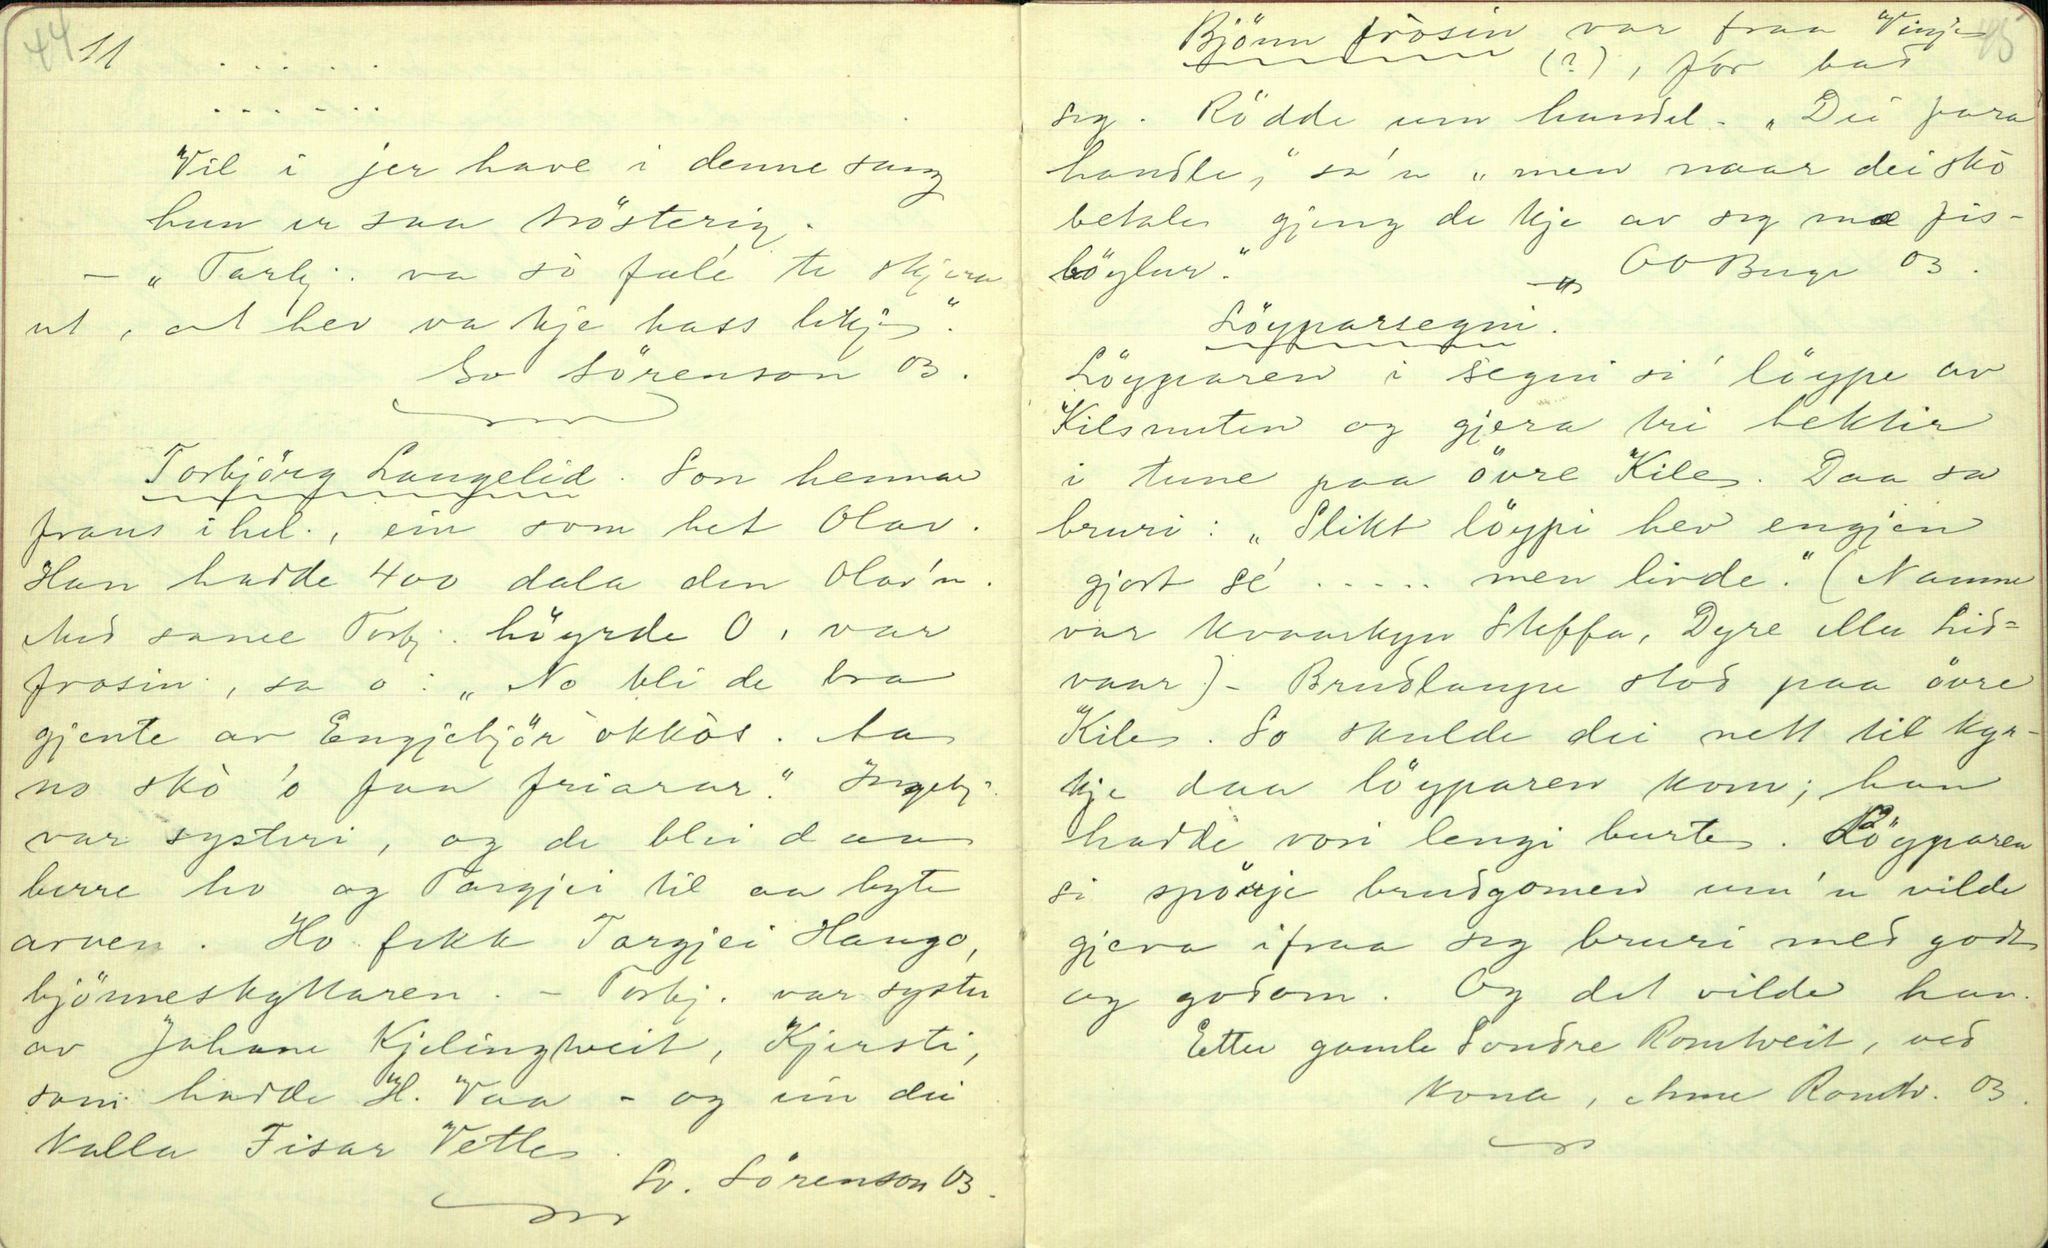 44
11
. . . . .
. . . . . .
Vil i jer have i denne sang
hun er saa trösterig.
- „Torbj. va so fælé te skjera
ut, at hev va kje hass likje".
Sv Sörenson 03.
Torbjörg Langelid. Son hennar
fraus ihel., ein som het Olav.
Han hadde 400 dala den Olav'n.
Med same Torbj. höyrde O, var
frosin, sa o: „No bli de bra
gjente av Engjebjör òkkòs. Aa
no skò 'o faa friarar." Ingebj.
var systeri, og de blei daa
berre ho og Torgjei til aa byte
arven. Ho fekk Torgjei Haugo,
björneskyttaren. - Torbj. var syster
av Johane Kjelingtveit, Kjersti,
som hadde H. Vaa - og ein dei
kalla Fisar Vetle.
Sv. Sörenson 03.
45
Björnn frosin var fraa Vinje
(?), for bad
seg. Rödde um handel. „Dei fara
handle," sa'n „men naar dei skò
betale gjeng de kje av seg mæ fis-
böylur."
„ OO Buge 03.
Löyparsegni.
Löyparen i segni si' löype av
Kilsnuten og gjera tri bektir
i tune paa övre Kile. Daa sa
bruri: „Slikt löypi hev engjen
gjort sé ..... men livde." (Namne
var kvaarkje Steffa, Dyre eller Lid=
vaar) - Brudlaupe stod paa övre
Kile. So skulde dei nett til kyr-
kje daa löyparen kom; han
hadde vori lengi burte. Löyparen
si' spörje brudgomen um'n vilde
gjeva ifraa seg bruri med godt
og godom. Og det vilde han.
Etter gamle Sondre Romtveit, ved
kona, Anne Romtv. 03.